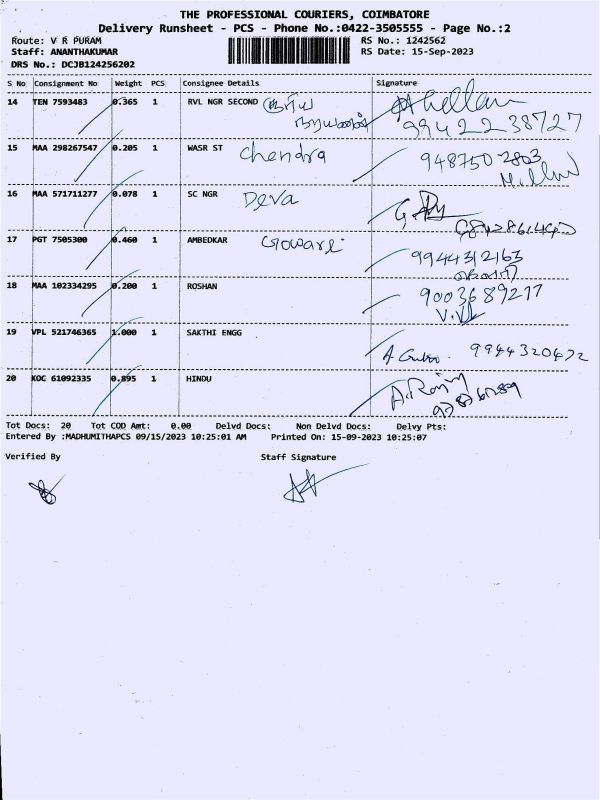 THE PROFESSIONAL COURIERS, COIMBATORE
Delivery Runsheet - PCS - Phone No.:0422-3505555 - Page No.:2
Route: V R PURAM
RS No.: 1242562
Staff: ANANTHAKUMAR
RS Date: 15-Sep-2023
DRS No.: DCJB124256202
S No Consignment No Weight PCS Consignee Details Signature
14 TEN 7593483 0.365 1 RVL NGR SECOND
99422 38727
15 MAA 298267547 0.205 1 WASR ST Chendra
948750 2803
16 MAA 571711277 0.078 1 SC NGR Deva
17 PGT 7505300 0.460 1 AMBEDKAR
9944312163
18 MAA 102334295 0.200 1 ROSHAN
9003689277
19 VPL 521746365 1.000 1 SAKTHI ENGG
20 KOC 61092335 0.895 1 HINDU
Tot Docs: 20 Tot COD Amt: 0.00 Delvd Docs: Non Delvd Docs: Delvy Pts:
Entered By :MADHUMITHAPCS 09/15/2023 10:25:01 AM Printed On: 15-09-2023 10:25:07
Verified By Staff Signature